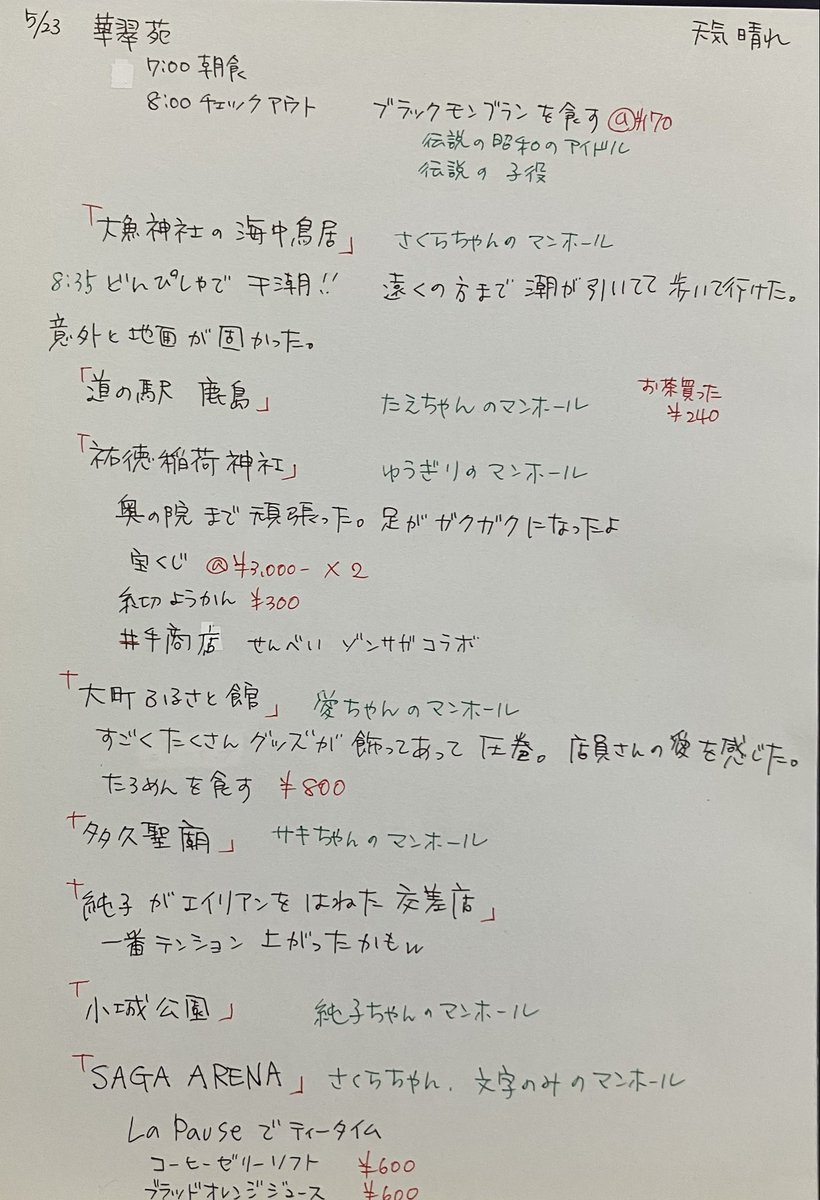 5/23 華翠苑 天気 晴れ
7:00 朝食
8:00 チェックアウト ブラックモンブランを食す @¥170
伝説の昭和のアイドル
伝説の 子役
「大魚神社の海中鳥居」 さくらちゃんのマンホール
8:35 どんぴしゃで 干潮!! 遠くの方まで潮が引いてて歩いて行けた。
意外と地面が固かった。
「道の駅 鹿島」 たえちゃんのマンホール お茶買った
¥240
「祐徳稲荷神社」 ゆうぎりのマンホール
奥の院まで頑張った。足がガクガクになったよ
宝くじ @¥3,000- × 2
糸切ようかん ¥300
井手商店 せんべい ゾンサガコラボ
「大町ふるさと館」 愛ちゃんのマンホール
すごくたくさんグッズが飾ってあって圧巻。店員さんの愛を感じた。
たろめんを食す ¥800
「多久聖廟」 サキちゃんのマンホール
「純子がエイリアンをはねた交差店」
一番テンション上がったかもw
「小城公園」 純子ちゃんのマンホール
「SAGA ARENA」 さくらちゃん、文字のみのマンホール
La Pauseでティータイム
コーヒーゼリーソフト ¥600
ブラッドオレンジジュース ¥600